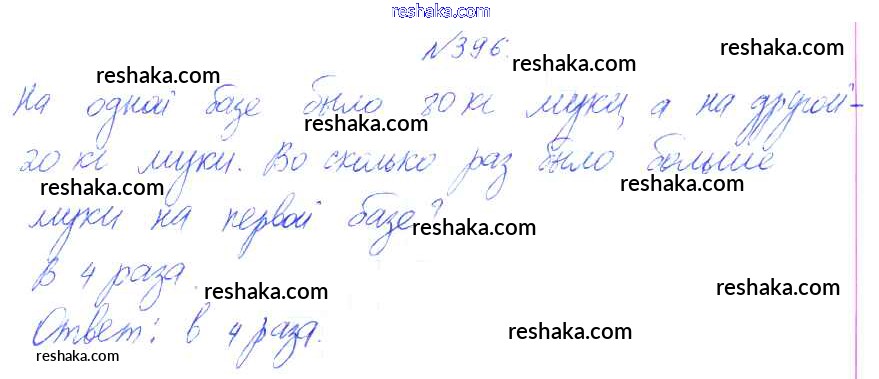 reshaka.com
№396.
reshaka.com
reshaka.com
reshaka.com
На одной базе было 80 кг муки, а на другой -
reshaka.com
20 кг муки. Во сколько раз было больше
reshaka.com
reshaka.com
муки на первой базе?
reshaka.com
В 4 раза.
reshaka.com
reshaka.com
Ответ: в 4 раза.
reshaka.com
reshaka.com